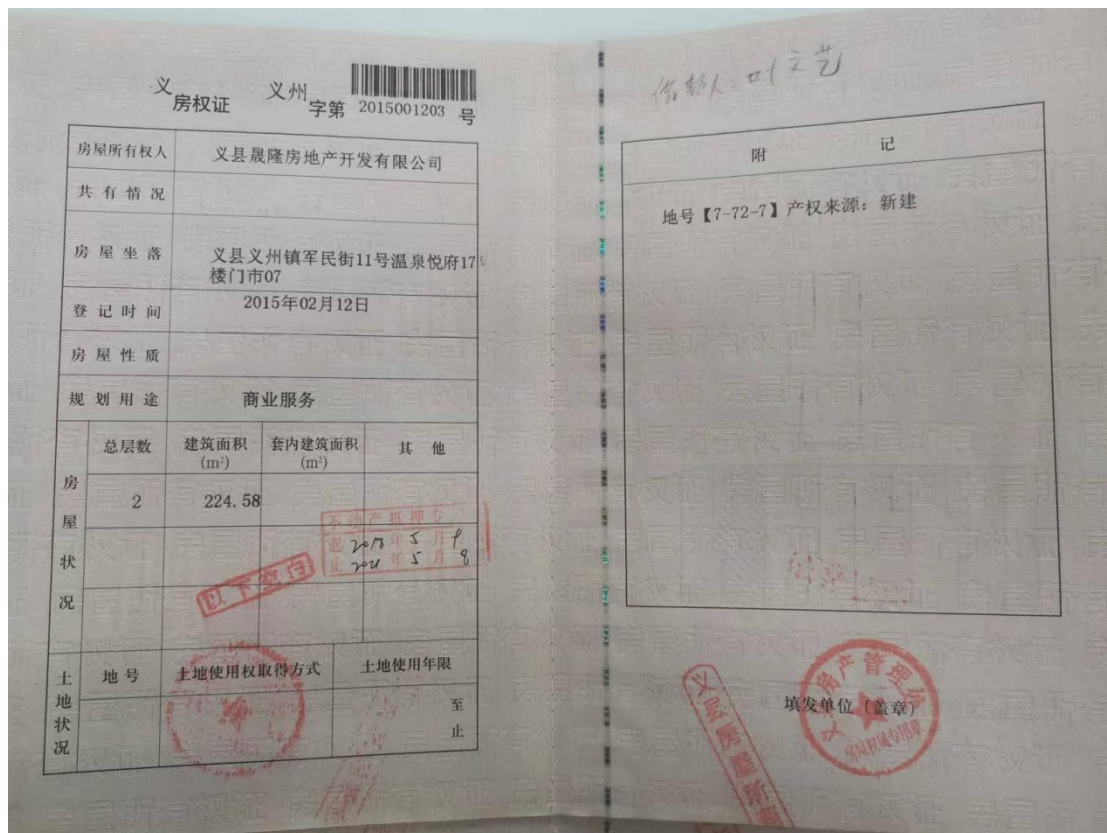 义 房权证 义州 字第 2015001203 号
房屋所有权人 义县晟隆房地产开发有限公司
共有情况
房屋坐落 义县义州镇军民街11号温泉悦府17
楼门市07
登记时间 2015年02月12日
房屋性质
规划用途 商业服务
房屋状况
总层数 建筑面积 套内建筑面积 其他
(m²) (m²)
2 224.58
不动产抵押专
起 2018年5月9
止 2021年5月8
以下空白
土地状况
地号 土地使用权取得方式 土地使用年限
至
止
借款人:叶文艺
附 记
地号【7-72-7】产权来源：新建
填发单位（盖章）
房产管理
房屋权属专用章
义 房屋所